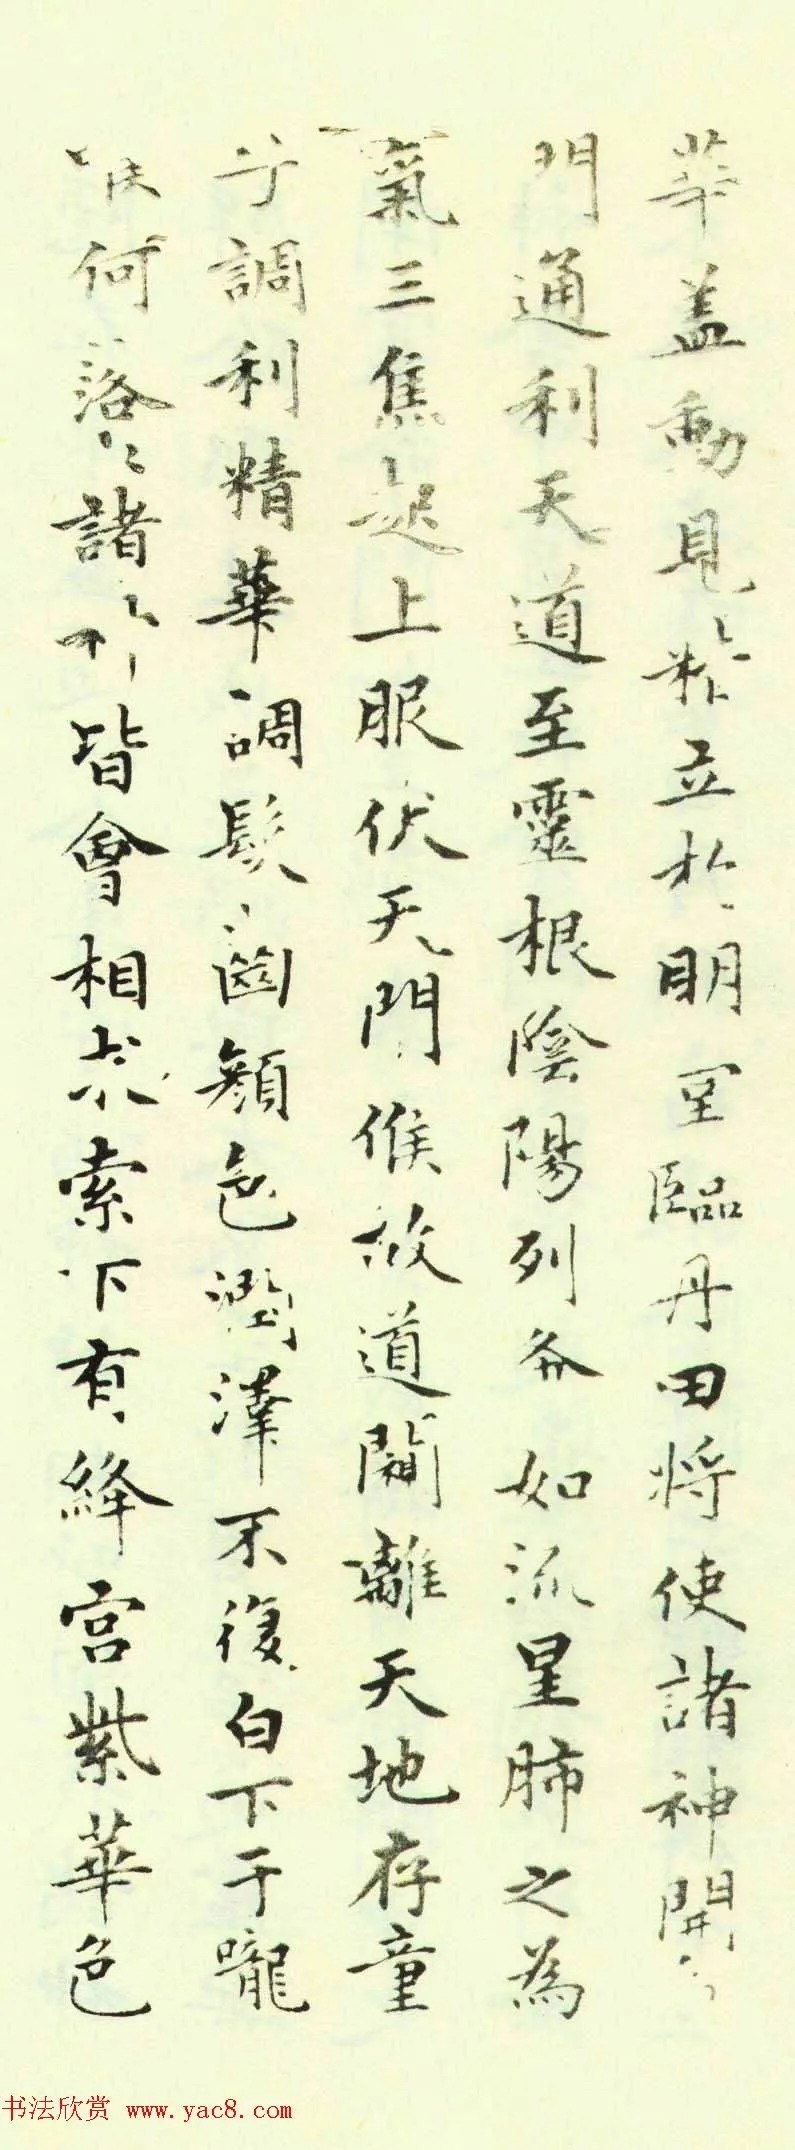 華盖動見精立於明堂臨丹田將使諸神開
門通利天道至靈根陰陽列布如流星肺之為
氣三焦起上服伏天門候故道闚離天地存童
子調利精華調髮齒顏色潤澤不復白下于嚨
喉何落落諸神皆會相求索下有絳宮紫華色
书法欣赏 www.yac8.com